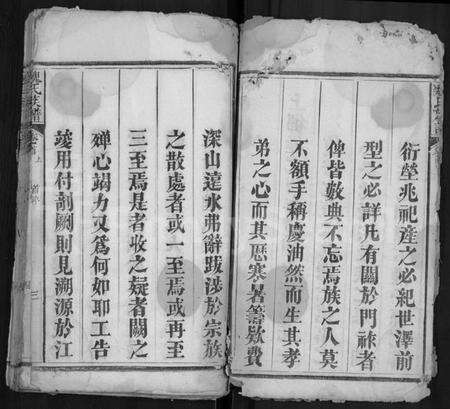 衍塋兆祀產之必紀世澤前
型之必詳凡有關於門祚者
俾皆數典不忘焉族之人莫
不額手稱慶油然而生其孝
弟之心而其歷寒暑籌歀費
深山遠水弗辭跋涉於宗族
之散處者或一至焉或再至
三至焉是者收之疑者闕之
殫心竭力又為何如耶工告
竣用付剞劂則見溯源於江
氏族譜
三